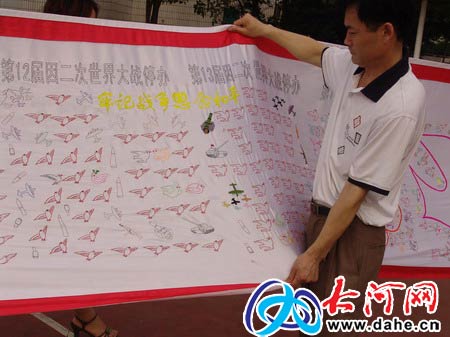 第12届因二次世界大战停办
第13届因二次世界大战停办
牢记战争思念和平
大河网
www.dahe.cn